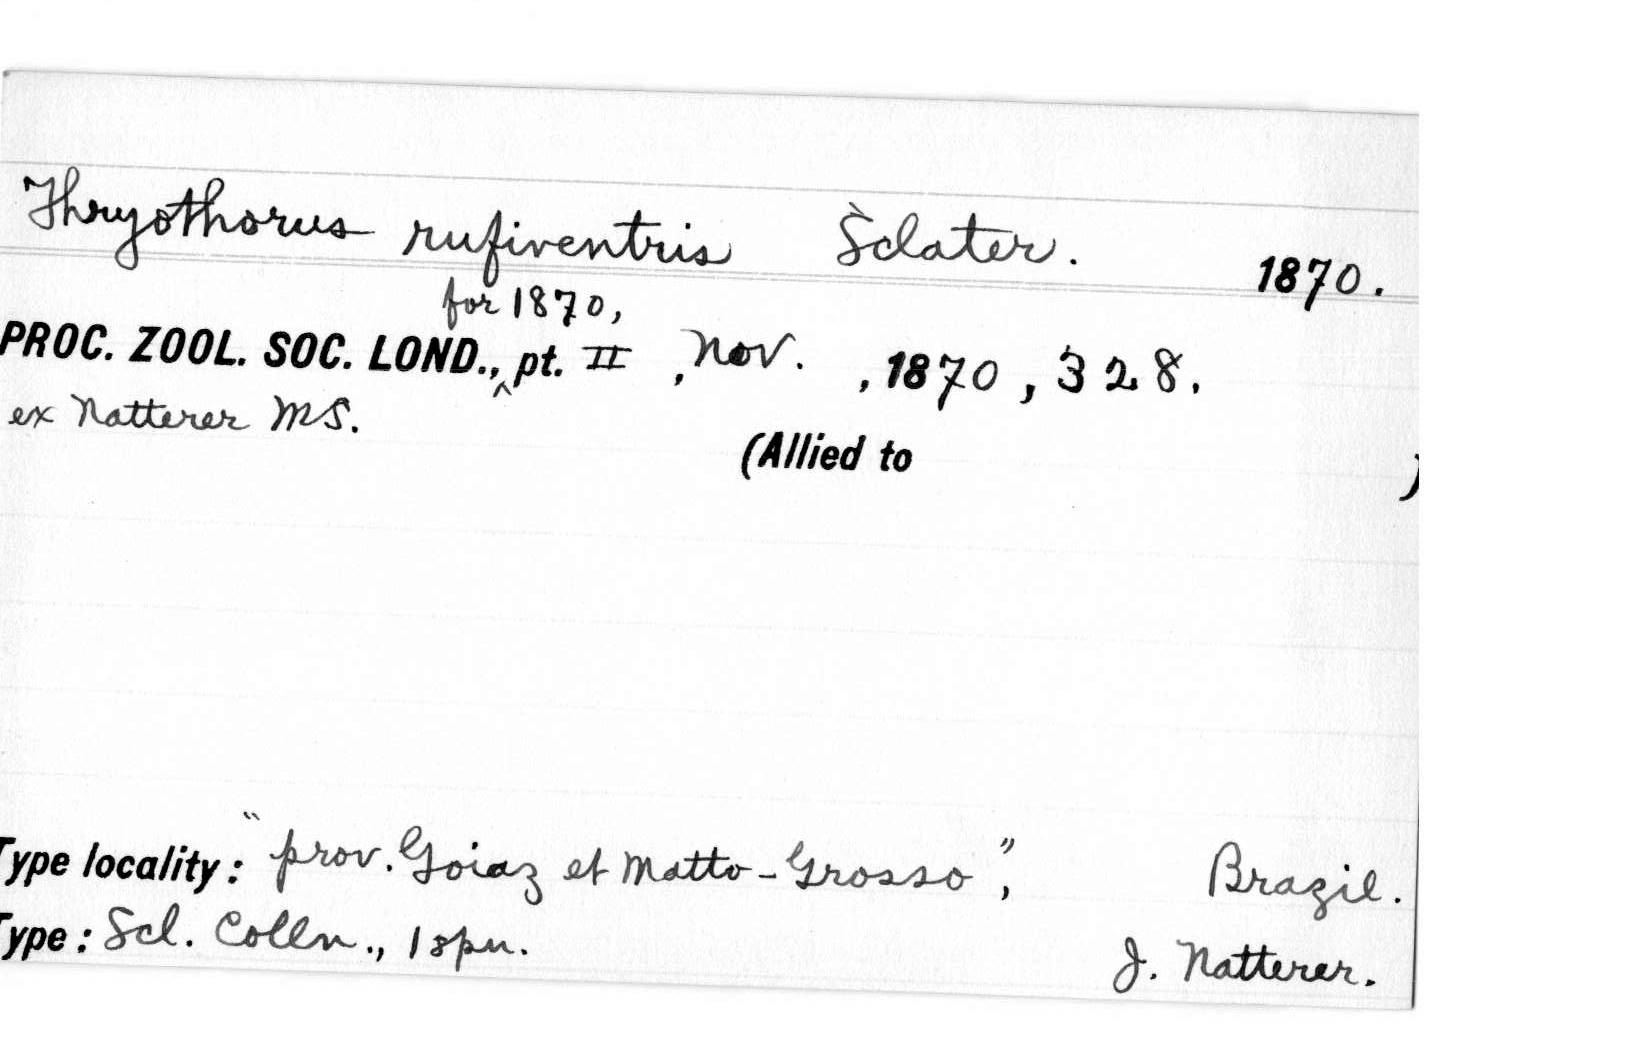 Thryothorus rufiventris Sclater. 1870.
for 1870,
PROC. ZOOL. SOC. LOND.,‸ pt. II , Nov. , 1870 , 328.
ex Natterer MS.
(Allied to )
Type locality: "prov. Goiaz et Matto-Grosso", Brazil.
Type: Scl. Colln., 1 spn.
J. Natterer.